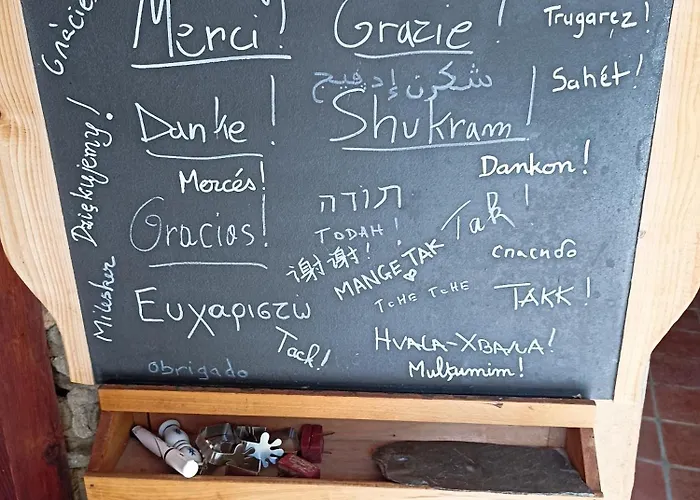 Gràcies!
Merci!
Grazie!
Trugarez!
شكرن إدفيح
Sahét!
Danke!
Shukram!
Dziękujemy!
Dankon!
Mercés!
תודה
TODAH!
Tak!
Gracias!
谢谢!
MANGE TAK
спасибо
Milesker
TCHE TCHE
TAKK!
Ευχαριστώ
Tack!
HVALA-ХВАЛА!
Mulţumim!
obrigado